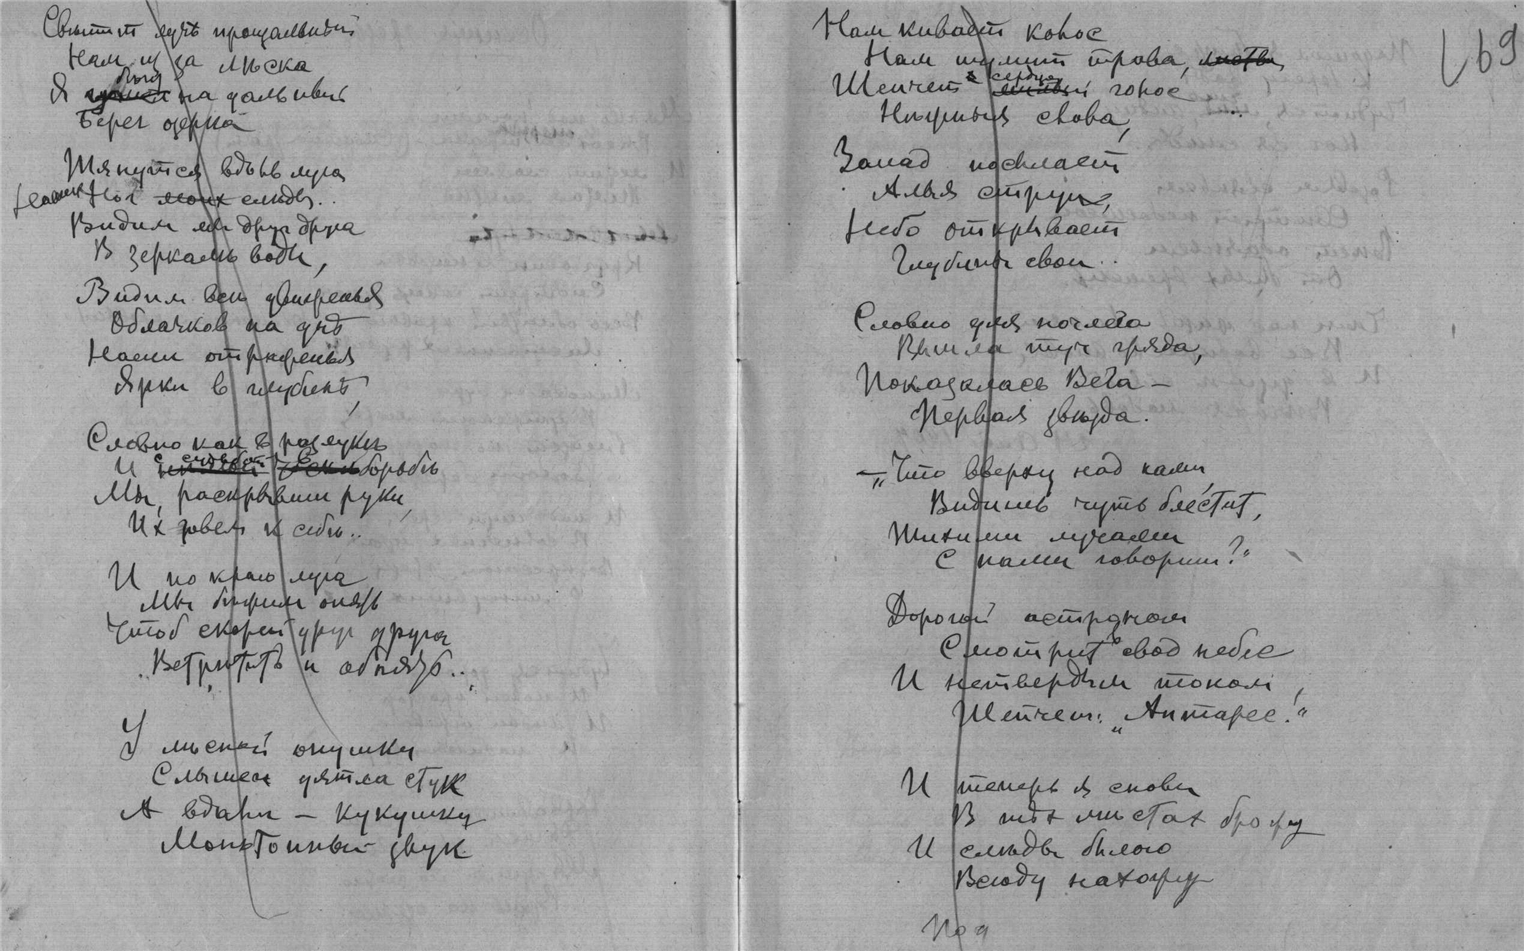 Свѣтит лучъ прощальный
Нам из за лѣска
Я бѣгу на дальный
Берег озерка
Тянутся вдоль луга
Наших Ног моих слѣды..
Видим мы друг друга
В зеркалѣ воды,
Видим все движенья
Облачков на днѣ
Наши отраженья
Ярки в глубинѣ,
Словно как в разлукѣ
И с судьбой в борьбѣ
Мы, раскрывши руки,
Их зовем к себѣ..
И по краю луга
Мы бѣжим опять
Чтоб скорей друг друга
Встрѣтить и обнять..
У лѣсной опушки
Слышен дятла стук
А вдали – кукушки
Монотонный звук
169
Нам кивает колос
Нам шумит трава, листва
Шепчет сердца голос
Нѣжныя слова,
Запад посылает
Алыя струи,
Небо открывает
Глубины свои..
Словно для полета
Вышла туч гряда,
Показалась Вега –
Первая звѣзда.
– „Что вверху над нами,
Видишь чуть блестит,
Тихими лучами
С нами говорит?"
Дорогой астроном
Смотрит в свод небес
И нетвердым тоном,
Шепчет: „Антарес!"
И теперь я снова
В тѣх мѣстах брожу
И слѣды былого
Всюду нахожу